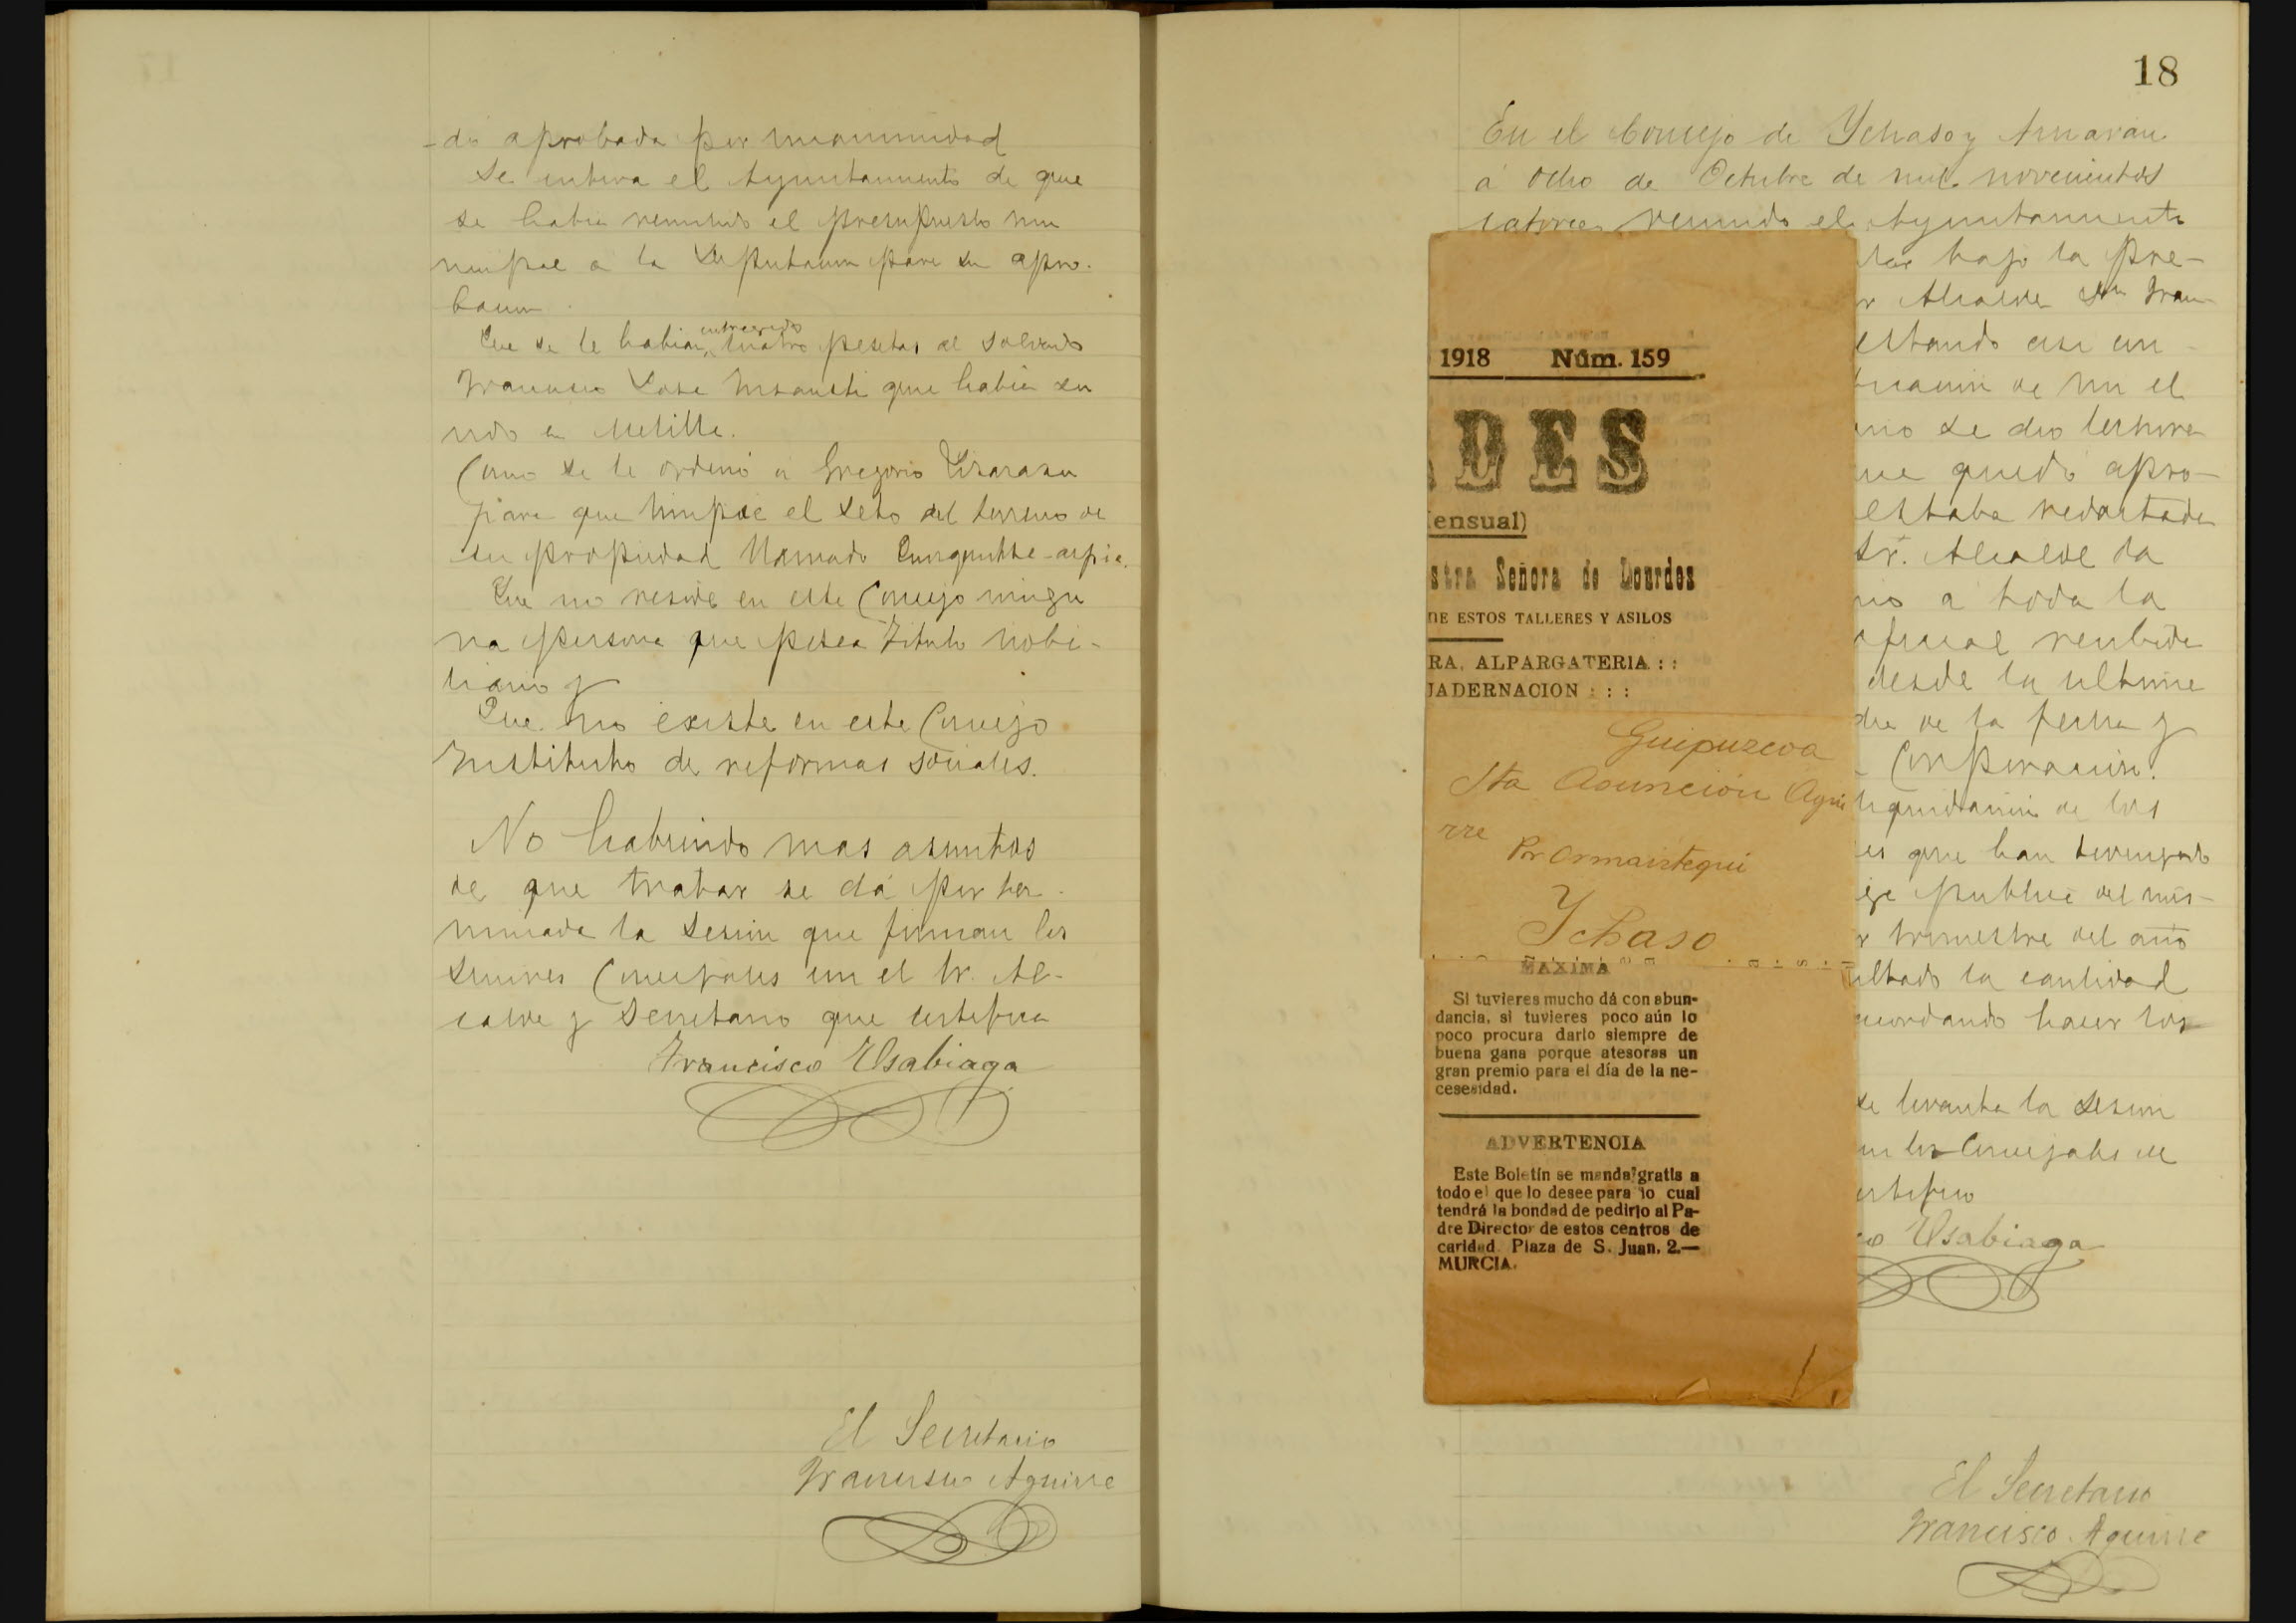 -dó aprobada por unanimidad
Se entera el Ayuntamiento de que
se habia remitido el presupuesto mu
nicipal a la Diputacion para su apro-
bacion.
Que se le habian entregado cuatro pesetas al soldado
Francisco Jose Insausti que habia ser
vido en Melilla.
Como se le ordenó a Gregorio
para que limpie el seto del terreno de
su propiedad llamado
Que no reside en este Concejo ningu
na persona que posea Titulo nobi-
liario y
Que no existe en este Concejo
Instituto de reformas sociales.
No habiendo mas asuntos
de que tratar se dá por ter-
minada la sesion que firman los
Señores Concejales con el Sr. Al-
calde y Secretario que certifica
Francisco Usabiaga
El Secretario
Francisco Aguirre
18
En el Concejo de Ychaso y Arriaran
á ocho de Octubre de mil novecientos
catorce, reunido el Ayuntamiento
bajo la pre-
r Alcalde Don Fran-
estando asi con
de mi el
rio se dio lectura
ue quedó apro-
estaba redactada
Sr. Alcalde da
a toda la
oficial recibida
desde la ultima
dia de la fecha y
Corporacion.
liquidacion de los
es que han devengado
publica del mis-
r trimestre del año
ultado la cantidad
acordando hacer los
se levanta la sesion
con los Concejales de
certifico
co Usabiaga
El Secretario
Francisco Aguirre
1918 Núm. 159
ADES
ensual)
stra Señora de Lourdes
DE ESTOS TALLERES Y ASILOS
RA, ALPARGATERIA : :
UADERNACION : : :
Guipuzcoa
Sta Asunción Agui
rre
Por Ormaiztegui
Ychaso
MAXIMA
Si tuvieres mucho dá con abun-
dancia, si tuvieres poco aún lo
poco procura darlo siempre de
buena gana porque atesoras un
gran premio para el día de la ne-
cesesidad.
ADVERTENCIA
Este Boletín se manda gratis a
todo el que lo desee para lo cual
tendrá la bondad de pedirlo al Pa-
dre Director de estos centros de
caridad. Plaza de S. Juan, 2.—
MURCIA.